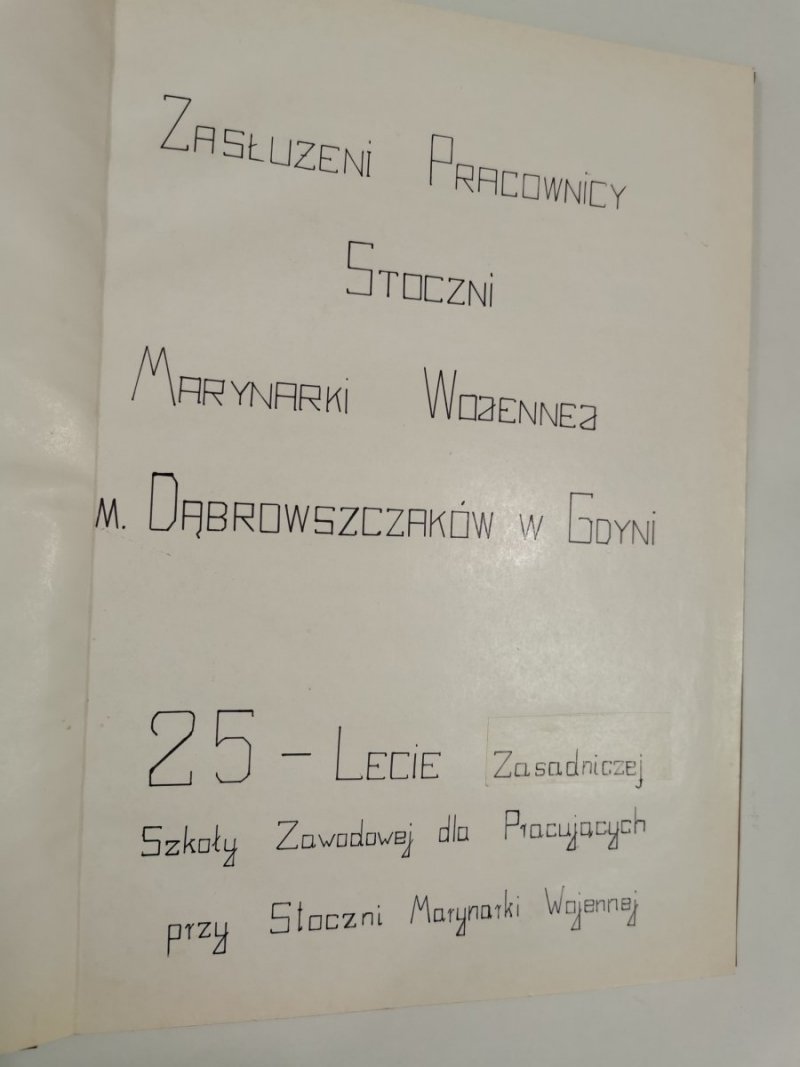 Zasłużeni Pracownicy
Stoczni
Marynarki Wojennej
m. Dąbrowszczaków w Gdyni
25 - Lecie Zasadniczej
Szkoły Zawodowej dla Pracujących
przy Stoczni Marynarki Wojennej